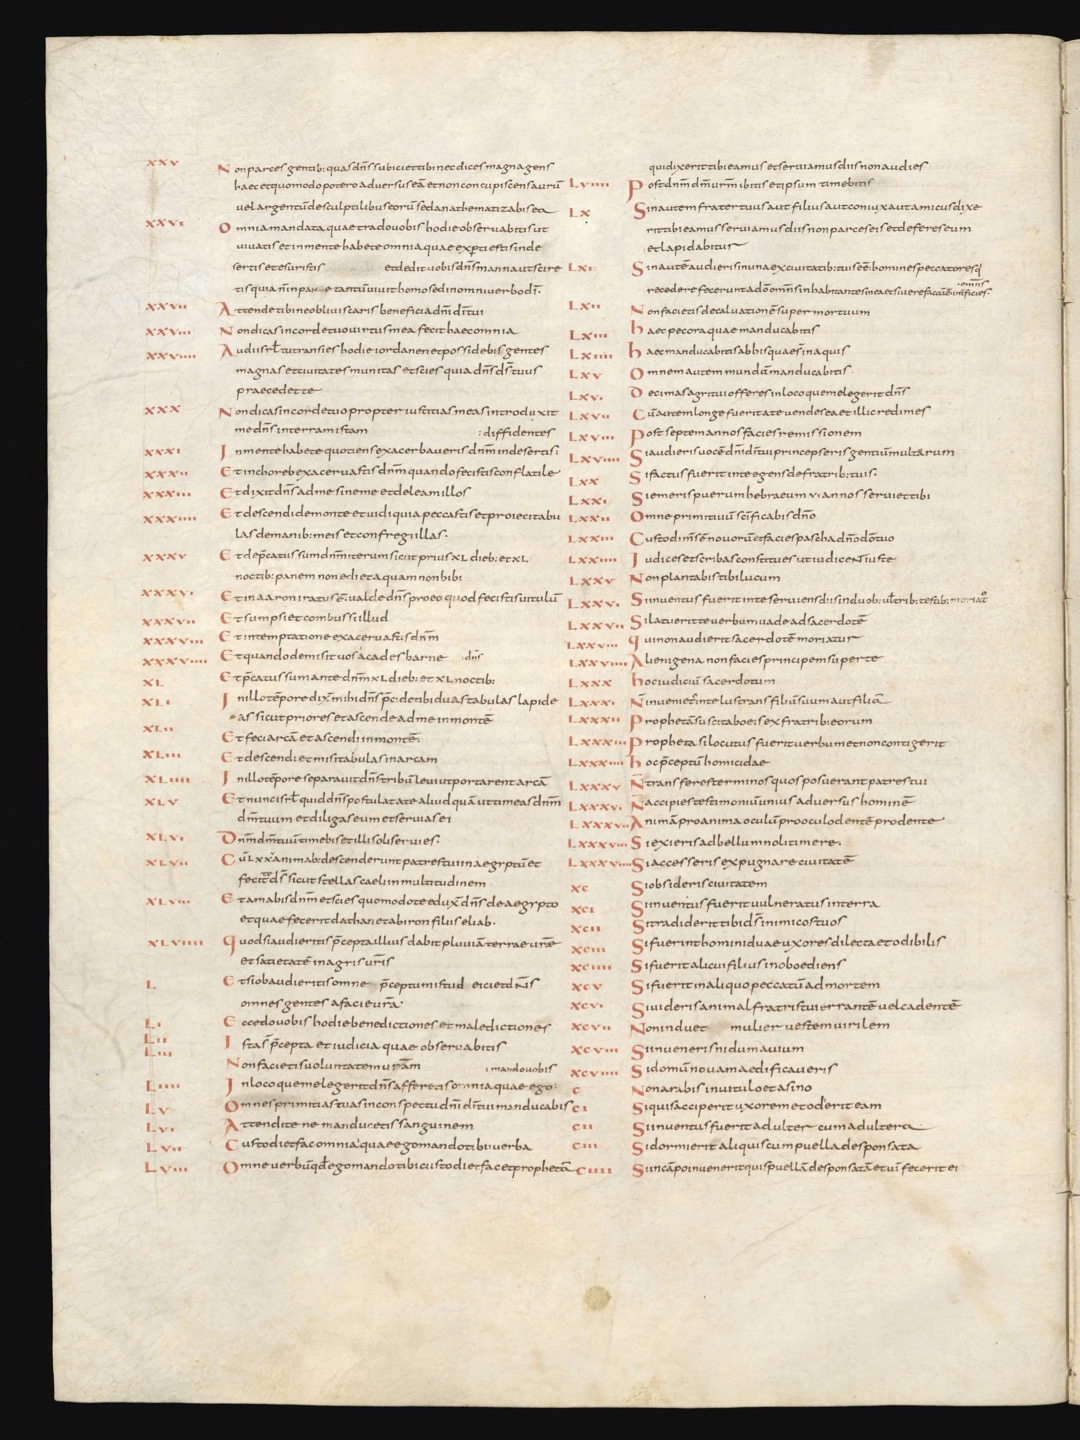 XXV Non parces gentib: quas dn̄s subiciet tibi nec dices magna gens
haec et quomodo potero adversus eā et non concupiscens aurū
vel argentū de sculptilibus eorū sed anathematizabis ea
XXVI Omnia mandata quae trado vobis hodie observabitis ut
vivatis et in mente habete omnia quae experti estis in de
sertis et esuristis et dedit vobis dn̄s manna ut scire
tis quia n̄ in pane tantū vivit homo sed in omni verbo dī.
XXVII Attende tibi ne obliviscaris beneficia dn̄i dī tui
XXVIII Non dicas in corde tuo virtus mea fecit haec omnia
XXVIIII Audi isrl̄ tu transies hodie iordanen et possidebis gentes
magnas et civitates munitas et scies quia dn̄s ds̄ tuus
praecedet te
XXX Non dicas in corde tuo propter iustitias meas introduxit
me dn̄s in terram istam : diffidentes
XXXI In mente habete quotiens exacerbaveris dn̄m in desertis:
XXXII Et in choreb exacervastis dn̄m quando fecistis conflatile
XXXIII Et dixit dn̄s ad me sine me et deleam illos
XXXIIII Et descendi de monte et vidi quia peccastis et proieci tabu
las de manib: meis et confregi illas.
XXXV Et dep̄catus sum dn̄m iterum sicut prius XL dieb: et XL
noctib: panem non edi et aquam non bibi
XXXVI Et in aaron iratus ē valde dn̄s pro eo quod fecisti vitulū
XXXVII Et sumpsi et combussi illud
XXXVIII Et in temptatione exacervastis dn̄m
XXXVIIII Et quando demisit vos a cades barne :dn̄s
XL Et p̄catus sum ante dn̄m XL dieb: et XL noctib:
XLI In illo tēpore dix̄ mihi dn̄s p̄cide tibi duas tabulas lapide
as sicut priores et ascende ad me in montē
XLII Et feci arcā et ascendi in montē.
XLIII Et descendi et misi tabulas in arcam
XLIIII In illo tēpore separavit dn̄s tribū levi ut portarent arcā
XLV Et nunc isrl̄ quid dn̄s postulat a te aliud quā ut timeas dn̄m
dm̄ tuum et diligas eum et servias ei
XLVI Dn̄m dm̄ tuū timebis et illi soli servies.
XLVII Cū LXX animab: descenderunt patres tui in aegyptū et
fecit te ds̄ sicut stellas caeli in multitudinem
XLVIII Et amabis dn̄m et scies quomodo te eduxꝰ dn̄s de aegypto
et quae fecerit dathan et abiron filiis eliab.
XLVIIII Quod si audieritis p̄cepta illius dabit pluviā terrae vr̄ae
et satietatē in agris vr̄is
L Et si obaudieritis omne p̄ceptum istud eiciet dn̄s
omnes gentes a facie vr̄a.
LI Ecce do vobis hodie benedictiones et maledictiones
LII Ista s̄ p̄cepta et iudicia quae observabitis
LIII Non facietis voluntatem vr̄am : mando vobis
LIIII In loco quem elegerit dn̄s afferetis omnia quae ego:
LV Omnes primitias tuas in conspectu dn̄i dī tui manducabis
LVI Attendite ne manducetis sanguinem
LVII Custodi et fac omnia quae ego mando tibi verba
LVIII Omne verbū qd̄ ego mando tibi custodi et facet propheta
qui dixerit tibi eamus et serviamus diis non audies
LVIIII Post dn̄m dm̄ vr̄m ibitis et ipsum timebitis
LX Si autem frater tuus aut filius aut coniux aut amicus dixe
rit tibi eamus serviamus diis non parces ei set deferes eum
et lapidabitur
LXI Si autē audieris in una ex civitatib: tuis eē homines peccatores q̄
recedere fecerunt a dō omn̄s inhabitantes in ea et si vere factū ē interficies. .omn̄s
LXII Non facietis decalvationē super mortuum
LXIII haec pecora quae manducabitis
LXIIII haec manducabitis ab his quae s̄ in aquis
LXV Omnem autem mundū manducabitis.
LXVI Decimas agri tui offeres in loco quem elegerit dn̄s
LXVII Cū autem longe fuerit a te vendes ea et illic redimes
LXVIII Post septem annos facies remissionem
LXVIIII Si audieris vocē dn̄i dī tui princeps eris gentiū multarum
LXX Si factus fuerit in te egens de fratrib: tuis.
LXXI Si emeris puerum hebraeum VI annos serviet tibi
LXXII Omne primitivū sc̄ificabis dn̄o
LXXIII Custodi mn̄sē novorū et facies pascha dn̄o dō tuo
LXXIIII Iudices et scribas constitues ut iudicent iuste
LXXV Non plantabis tibi lucum
LXXVI Si inventus fuerit in te serviens diis in duob: vel trib: testib: moriat̄
LXXVII Si latuerit te verbum vade ad sacerdotē
LXXVIII Qui non audierit sacerdotē moriatur
LXXVIIII Alienigena non facies principem super te
LXXX hoc iudiciū sacerdotum
LXXXI N̄ inveniet̄ in te lustrans filiū suum aut filiā
LXXXII Prophetā suscitabo eis ex fratrib: eorum
LXXXIII Propheta si locutus fuerit verbum et non contigerit
LXXXIIII hoc p̄ceptū homicidae
LXXXV N̄ transferes terminos quos posuerant patres tui
LXXXVI N̄ accipies testimoniū unius adversus hominē
LXXXVII Animā pro anima oculū pro oculo dentē pro dente
LXXXVIII Si exieris ad bellum noli timere.
LXXXVIIII Si accesseris expugnare civitatē
XC Si obsideris civitatem
XCI Si inventus fuerit vulneratus in terra
XCII Si tradiderit tibi ds̄ inimicos tuos
XCIII Si fuerint homini duae uxores dilecta et odibilis
XCIIII Si fuerit alicui filius inoboediens
XCV Si fuerit in aliquo peccatū ad mortem
XCVI Si videris animal fratris tui errantē vel cadentē
XCVII Non induet mulier vestem virilem
XCVIII Si inveneris nidum avium
XCVIIII Si domū novam aedificaveris
C Non arabis in vitulo et asino
CI Si quis acciperit uxorem et oderit eam
CII Si inventus fuerit adulter cum adultera
CIII Si dormierit aliquis cum puella desponsata
CIIII Si in cāpo invenerit quis puellā desponsatā et vim fecerit ei